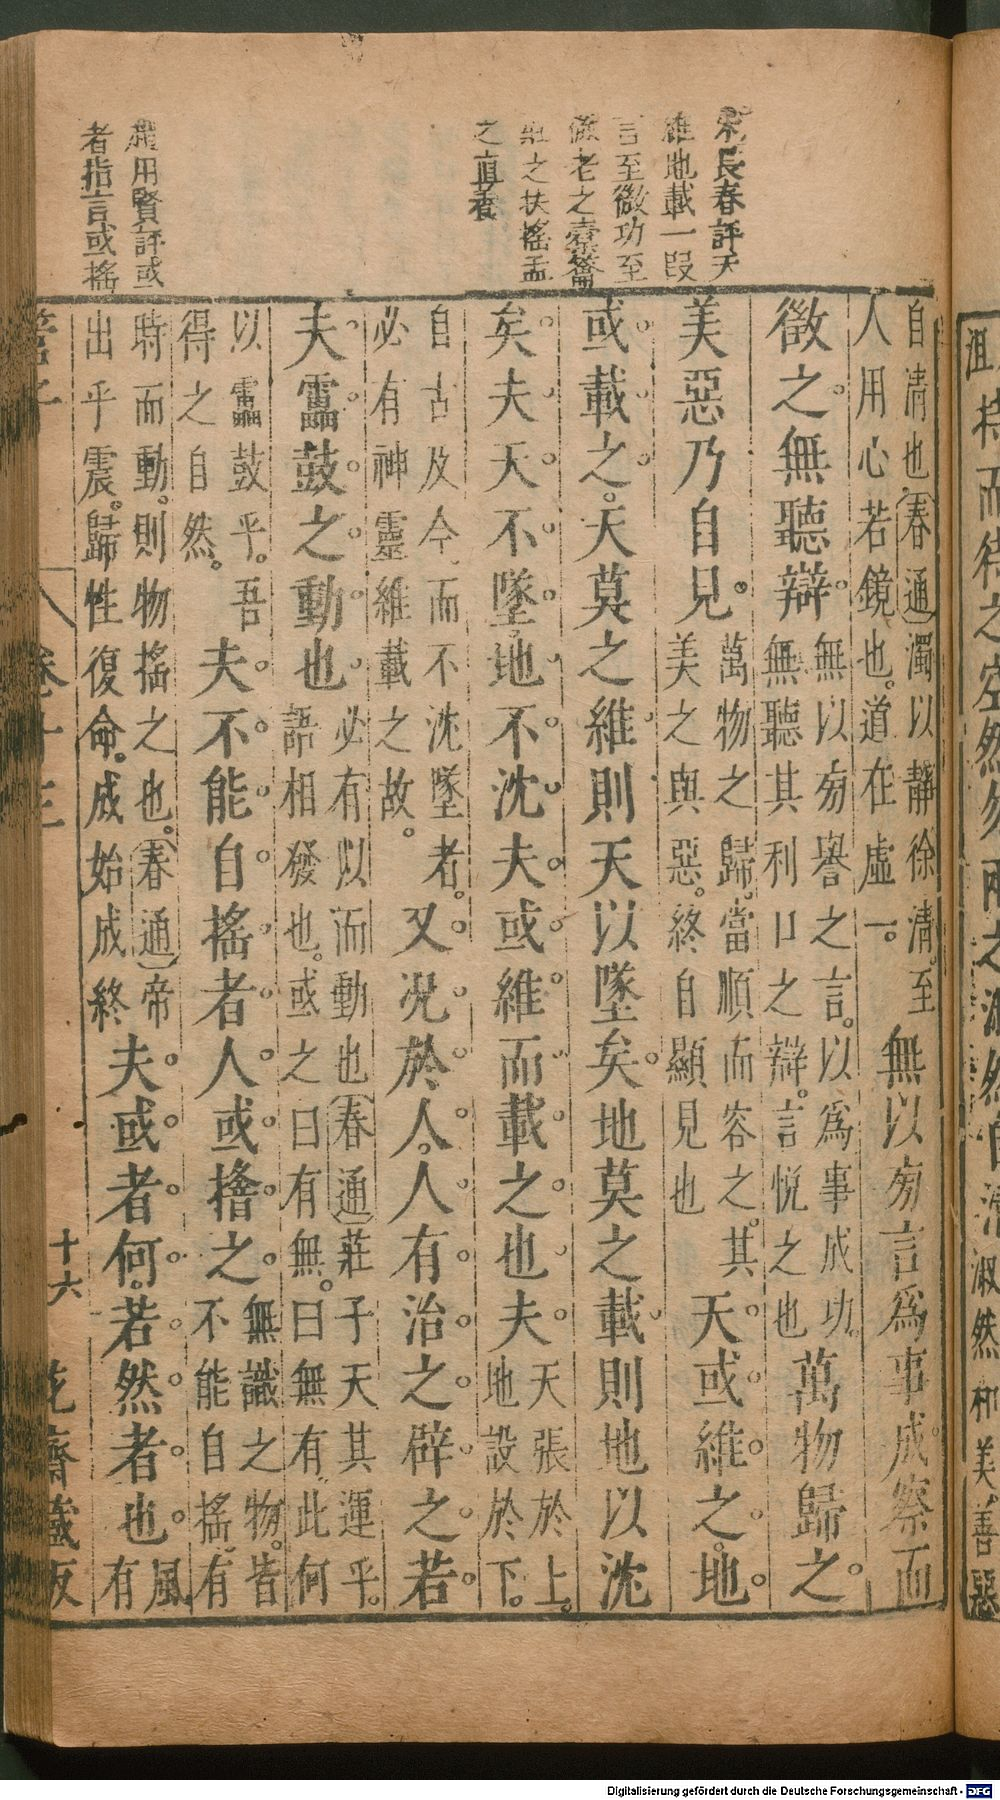 宋長春評天
維地載一段
言至微功至
之直者
趙用賢評或
者指言或搖
自清也春通濁以靜徐清至
人用心若鏡也道在虛一
無以旁言爲事成察而
徵之無聽辯
無以旁譽之言以爲事成功
無聽其利口之辯言悅之也
萬物歸之
美惡乃自見
萬物之歸當順而容之其
美之與惡終自顯見也
天或維之地
或載之天莫之維則天以墜矣地莫之載則地以沈
矣夫天不墜地不沈夫或維而載之也夫
天張於上
地設於下
自古及今而不沈墜者
必有神靈維載之故
又況於人人有治之辟之若
夫靁鼓之動也
必有以而動也春通莊子天其運乎
語相發也或之曰有無曰無有此何
以靁鼓乎吾
得之自然
夫不能自搖者人或㩡之
無識之物皆
不能自搖有
時而動則物搖之也春通帝
出乎震歸性復命成始成終
夫或者何若然者也
風
有
管子
卷十三
十六
花齋藏板
沮
持而待之空然勿兩之淑然自清
淑然和美善惡
Digitalisierung gefördert durch die Deutsche Forschungsgemeinschaft - DFG